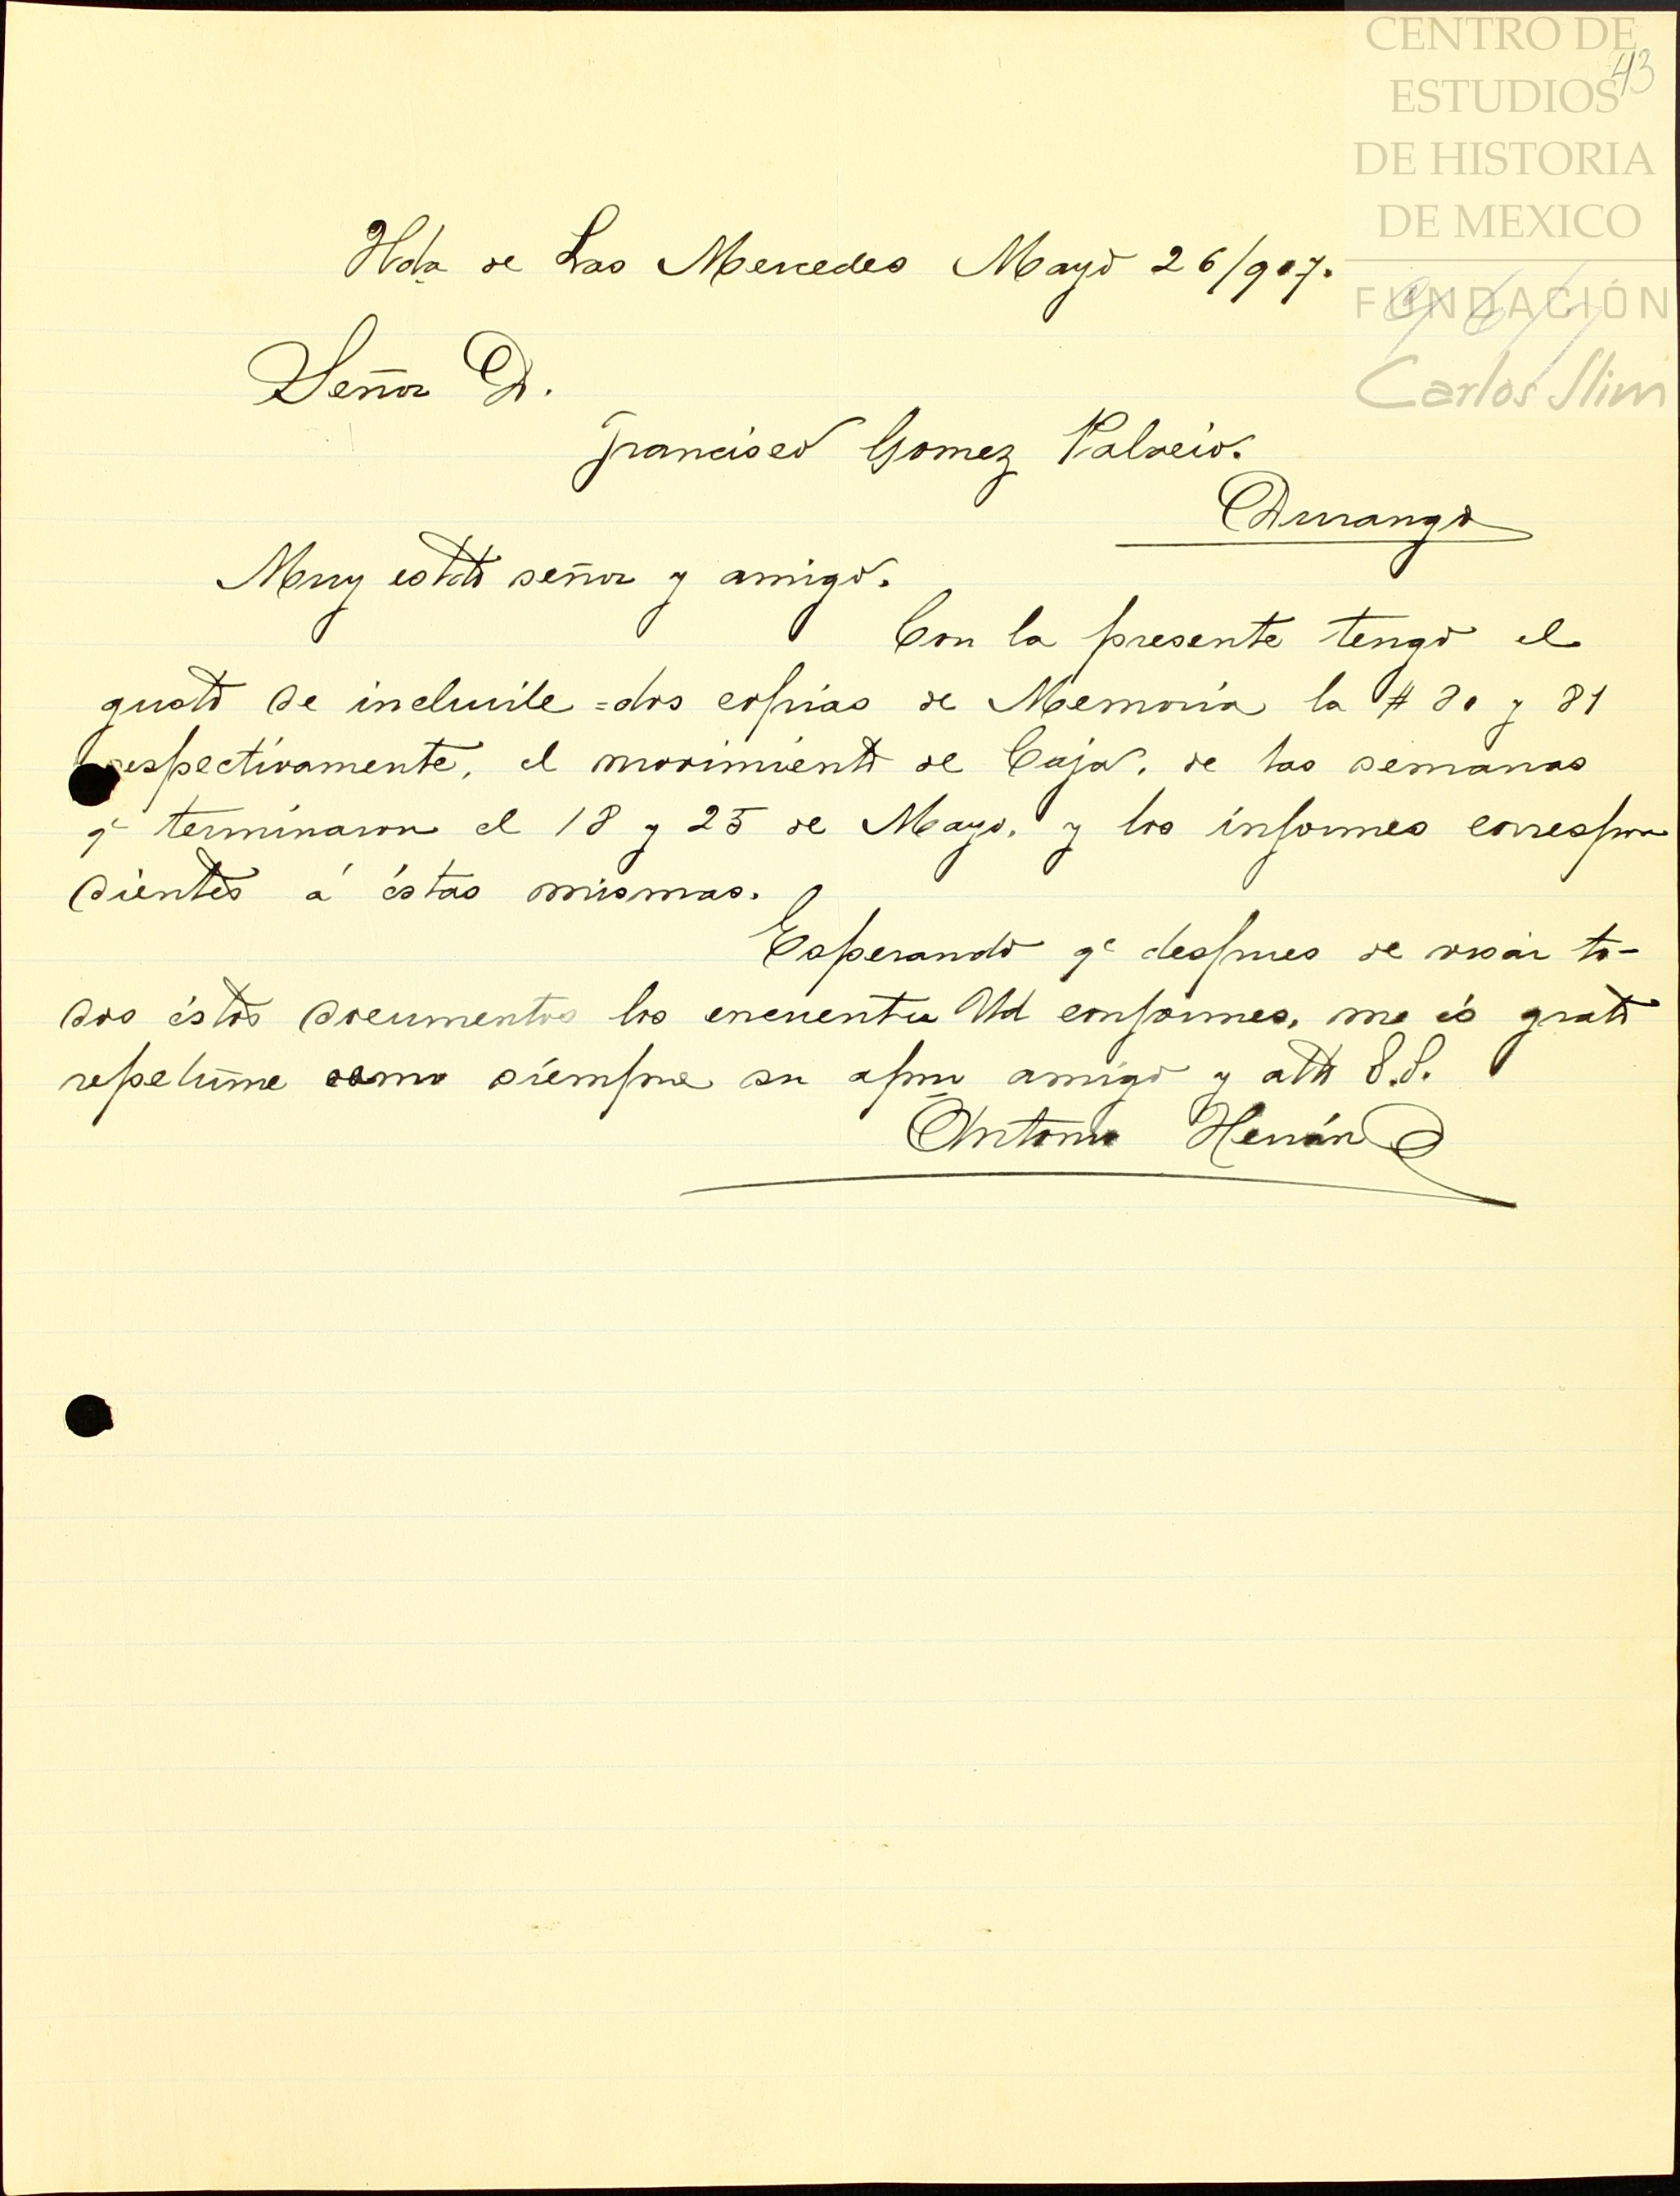 CENTRO DE
ESTUDIOS
DE HISTORIA
DE MEXICO
FUNDACIÓN
Carlos Slim
43
Hda de Las Mercedes Mayo 26/907.
Señor D.
Francisco Gomez Palacio.
Durango
Muy estdo señor y amigo.
Con la presente tengo el
gusto de incluirle =dos copias de Memoria la # 80 y 81
respectivamente, el movimiento de Caja, de las semanas
qe terminaron el 18 y 25 de Mayo, y los informes correspon
dientes á éstas mismas.
Esperando qe despues de revisar to-
dos éstos documentos los encuentre Ud conformes, me és grato
repetirme como siempre su afmo amigo y atto S.S.
Antonio Herrán